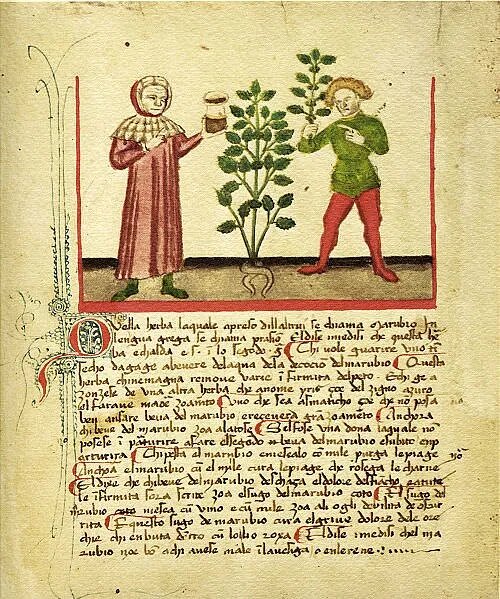 Quella herba laquale apreso dillaltrui se chiama marubio In
lengua grega se chiama prasio Eldise imedisi che questa he
ba echalda e s. i lo segōdo g Chi vole guarire uno ti
secho dagage abevere delaqua dela decocio delmarubio Questa
herba chi nemagna remove varie ifirmita delpeto Echi ge a
zonzese de una altra herba chi anome yris çoe del zigno azuro
el faraue maor zoamēto Uno che sea asmaticho çoe chi nō posa
ben ansare beva del marubio e recevera grā zoamēto Anchora
chi beve del marubio zoa alatose Sel fose una dona laquale nō
posese i parturire afare dise godo beva delmarubio e subito
parturira Chi pesta el marubio e mesealo cū mile purga le piage
Anchoa elmarubio cū el mile cura le piage che rosega le charne
Eldixe che chi beve del marubio deschaça eldolore del fiacho
se ifirmita soza scrite zoa elsugo delmarubio coto El sugo del
marubio coto mesea cū vino e cū mile zoa ali ogli debilita de
rita Equesto sugo de marubio cura elgrave dolore dele ore
chie chi en buta dētro cū lolio roxa Eldise imedisi chel ma
rubio noe bō achi avese male i la vesiga o en le rene